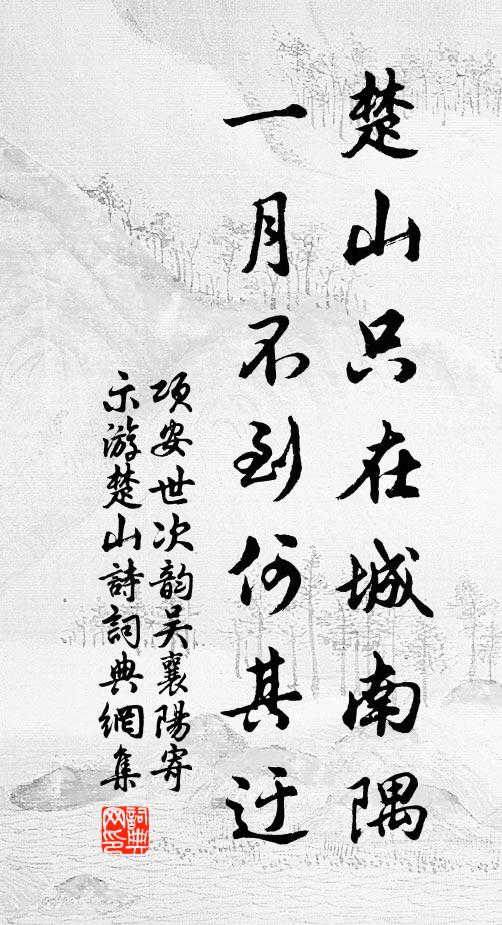 楚山只在城南隅
一月不到何其迂
项安世次韵吴襄陽寄
示游楚山詩詞典網集
詞典网印